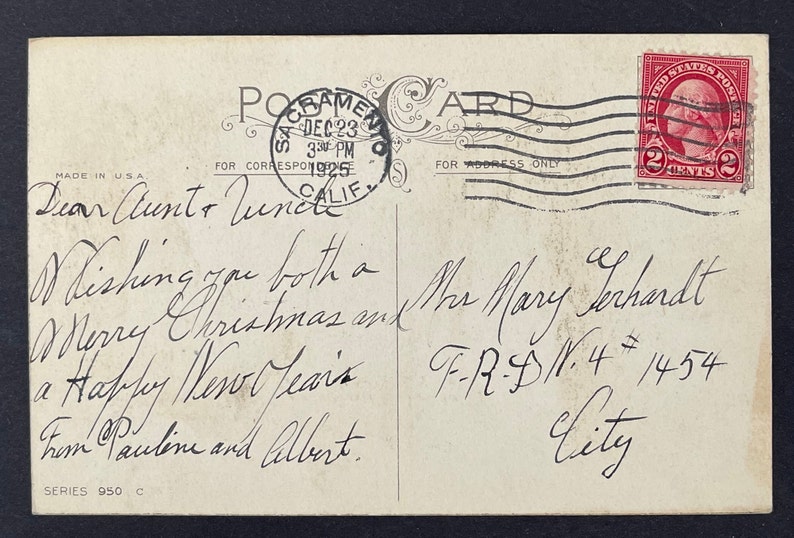 POST CARD
SACRAMENTO
DEC 23
3 30 PM
1925
CALIF.
UNITED STATES POSTAGE
2 CENTS 2
FOR CORRESPONDENCE
FOR ADDRESS ONLY
MADE IN U.S.A.
Dear Aunt & Uncle
Wishing you both a
Merry Christmas and
a Happy New Years
From Pauline and Albert.
Mrs Mary Gerhardt
F-R-D N. 4 # 1454
City
SERIES 950 C